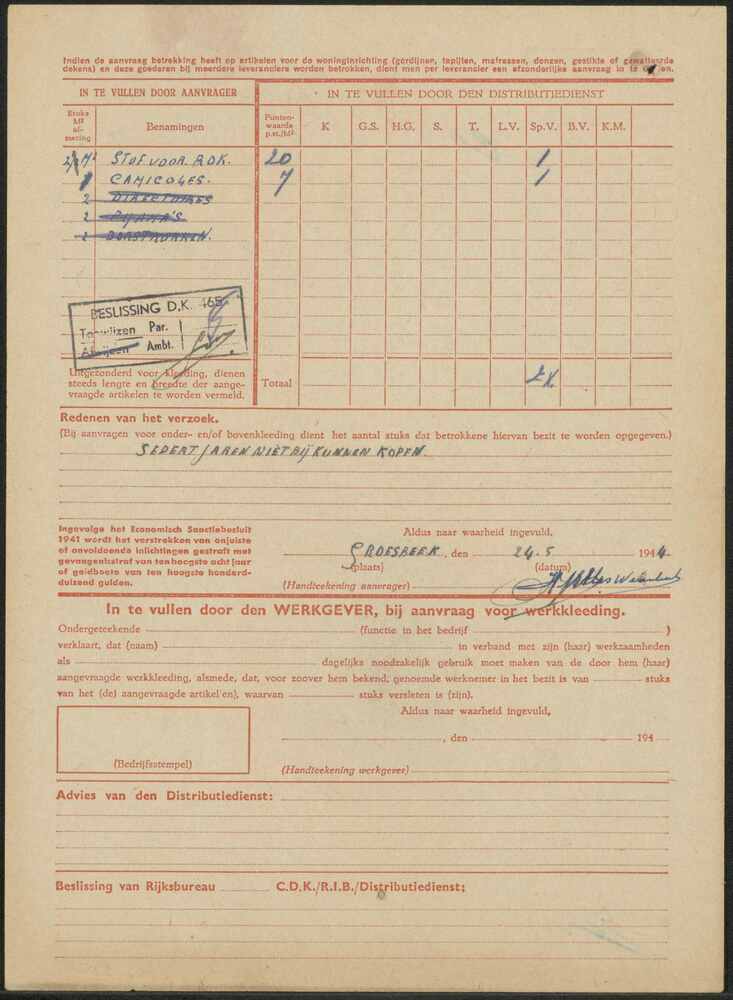 Indien de aanvraag betrekking heeft op artikelen voor de woninginrichting (gordijnen, tapijten, matrassen, donzen, gestikte of gewatteerde
dekens) en deze goederen bij meerdere leveranciers worden betrokken, dient men per leverancier een afzonderlijke aanvraag in te dienen.
IN TE VULLEN DOOR AANVRAGER
IN TE VULLEN DOOR DEN DISTRIBUTIEDIENST
Stuks M² af-meting Benamingen Punten-waarde p.st./M². K G.S. H.G. S. T. L.V. Sp.V. B.V. K.M.
STOF VOOR ROK. 20 1
1 CAMICOLES. 7 1
2 DIRECTOIRES
2 PYAMA'S
2 BORSTROKKEN.
BESLISSING D.K. 465
Toewijzen Par.
Afwijzen Ambt.
Uitgezonderd voor kleeding, dienen
steeds lengte en breedte der aange-
vraagde artikelen te worden vermeld.
Totaal
Redenen van het verzoek.
(Bij aanvragen voor onder- en/of bovenkleeding dient het aantal stuks dat betrokkene hiervan bezit te worden opgegeven.)
SEDERT JAREN NIET BIJ KUNNEN KOPEN
Ingevolge het Economisch Sanctiebesluit
1941 wordt het verstrekken van onjuiste
of onvoldoende inlichtingen gestraft met
gevangenisstraf van ten hoogste acht jaar
of geldboete van ten hoogste honderd-
duizend gulden.
Aldus naar waarheid ingevuld,
GROESBEEK, den 24-5 1944.
(plaats) (datum)
(Handteekening aanvrager)
In te vullen door den WERKGEVER, bij aanvraag voor werkkleeding.
Ondergeteekende (functie in het bedrijf )
verklaart, dat (naam) in verband met zijn (haar) werkzaamheden
als dagelijks noodzakelijk gebruik moet maken van de door hem (haar)
aangevraagde werkkleeding, alsmede, dat, voor zoover hem bekend, genoemde werknemer in het bezit is van stuks
van het (de) aangevraagde artikel(en), waarvan stuks versleten is (zijn).
Aldus naar waarheid ingevuld,
, den 194
(Bedrijfsstempel)
(Handteekening werkgever)
Advies van den Distributiedienst:
Beslissing van Rijksbureau C.D.K./R.I.B./Distributiedienst: